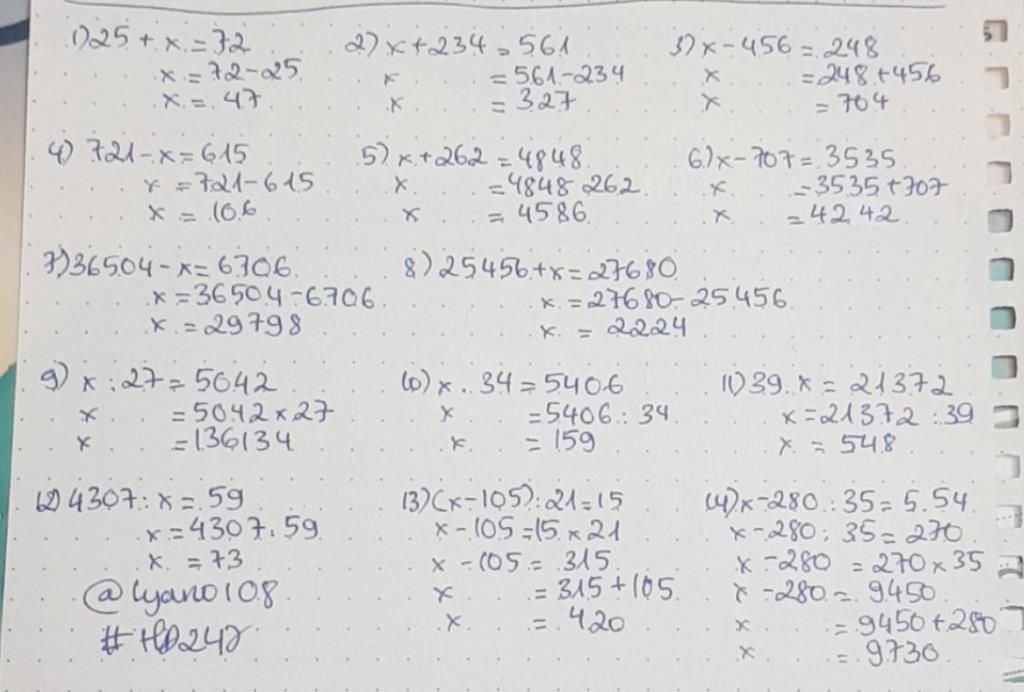 1) 25 + x = 72 2) x + 234 = 561 3) x - 456 = 248
x = 72 - 25 x = 561 - 234 x = 248 + 456
x = 47 x = 327 x = 704
4) 721 - x = 615 5) x + 262 = 4848 6) x - 707 = 3535
x = 721 - 615 x = 4848 262 x = 3535 + 707
x = 106 x = 4586 x = 4242
7) 36504 - x = 6706 8) 25456 + x = 27680
x = 36504 - 6706 x = 27680 - 25456
x = 29798 x = 2224
9) x : 27 = 5042 10) x . 34 = 5406 11) 39 . x = 21372
x = 5042 x 27 x = 5406 : 34 x = 21372 : 39
x = 136134 x = 159 x = 548
12) 4307 : x = 59 13) (x - 105) : 21 = 15 14) x - 280 : 35 = 5.54
x = 4307 : 59 x - 105 = 15 x 21 x - 280 : 35 = 270
x = 73 x - 105 = 315 x - 280 = 270 x 35
@lyano108 x = 315 + 105 x - 280 = 9450
x = 420 x = 9450 + 280
x = 9730